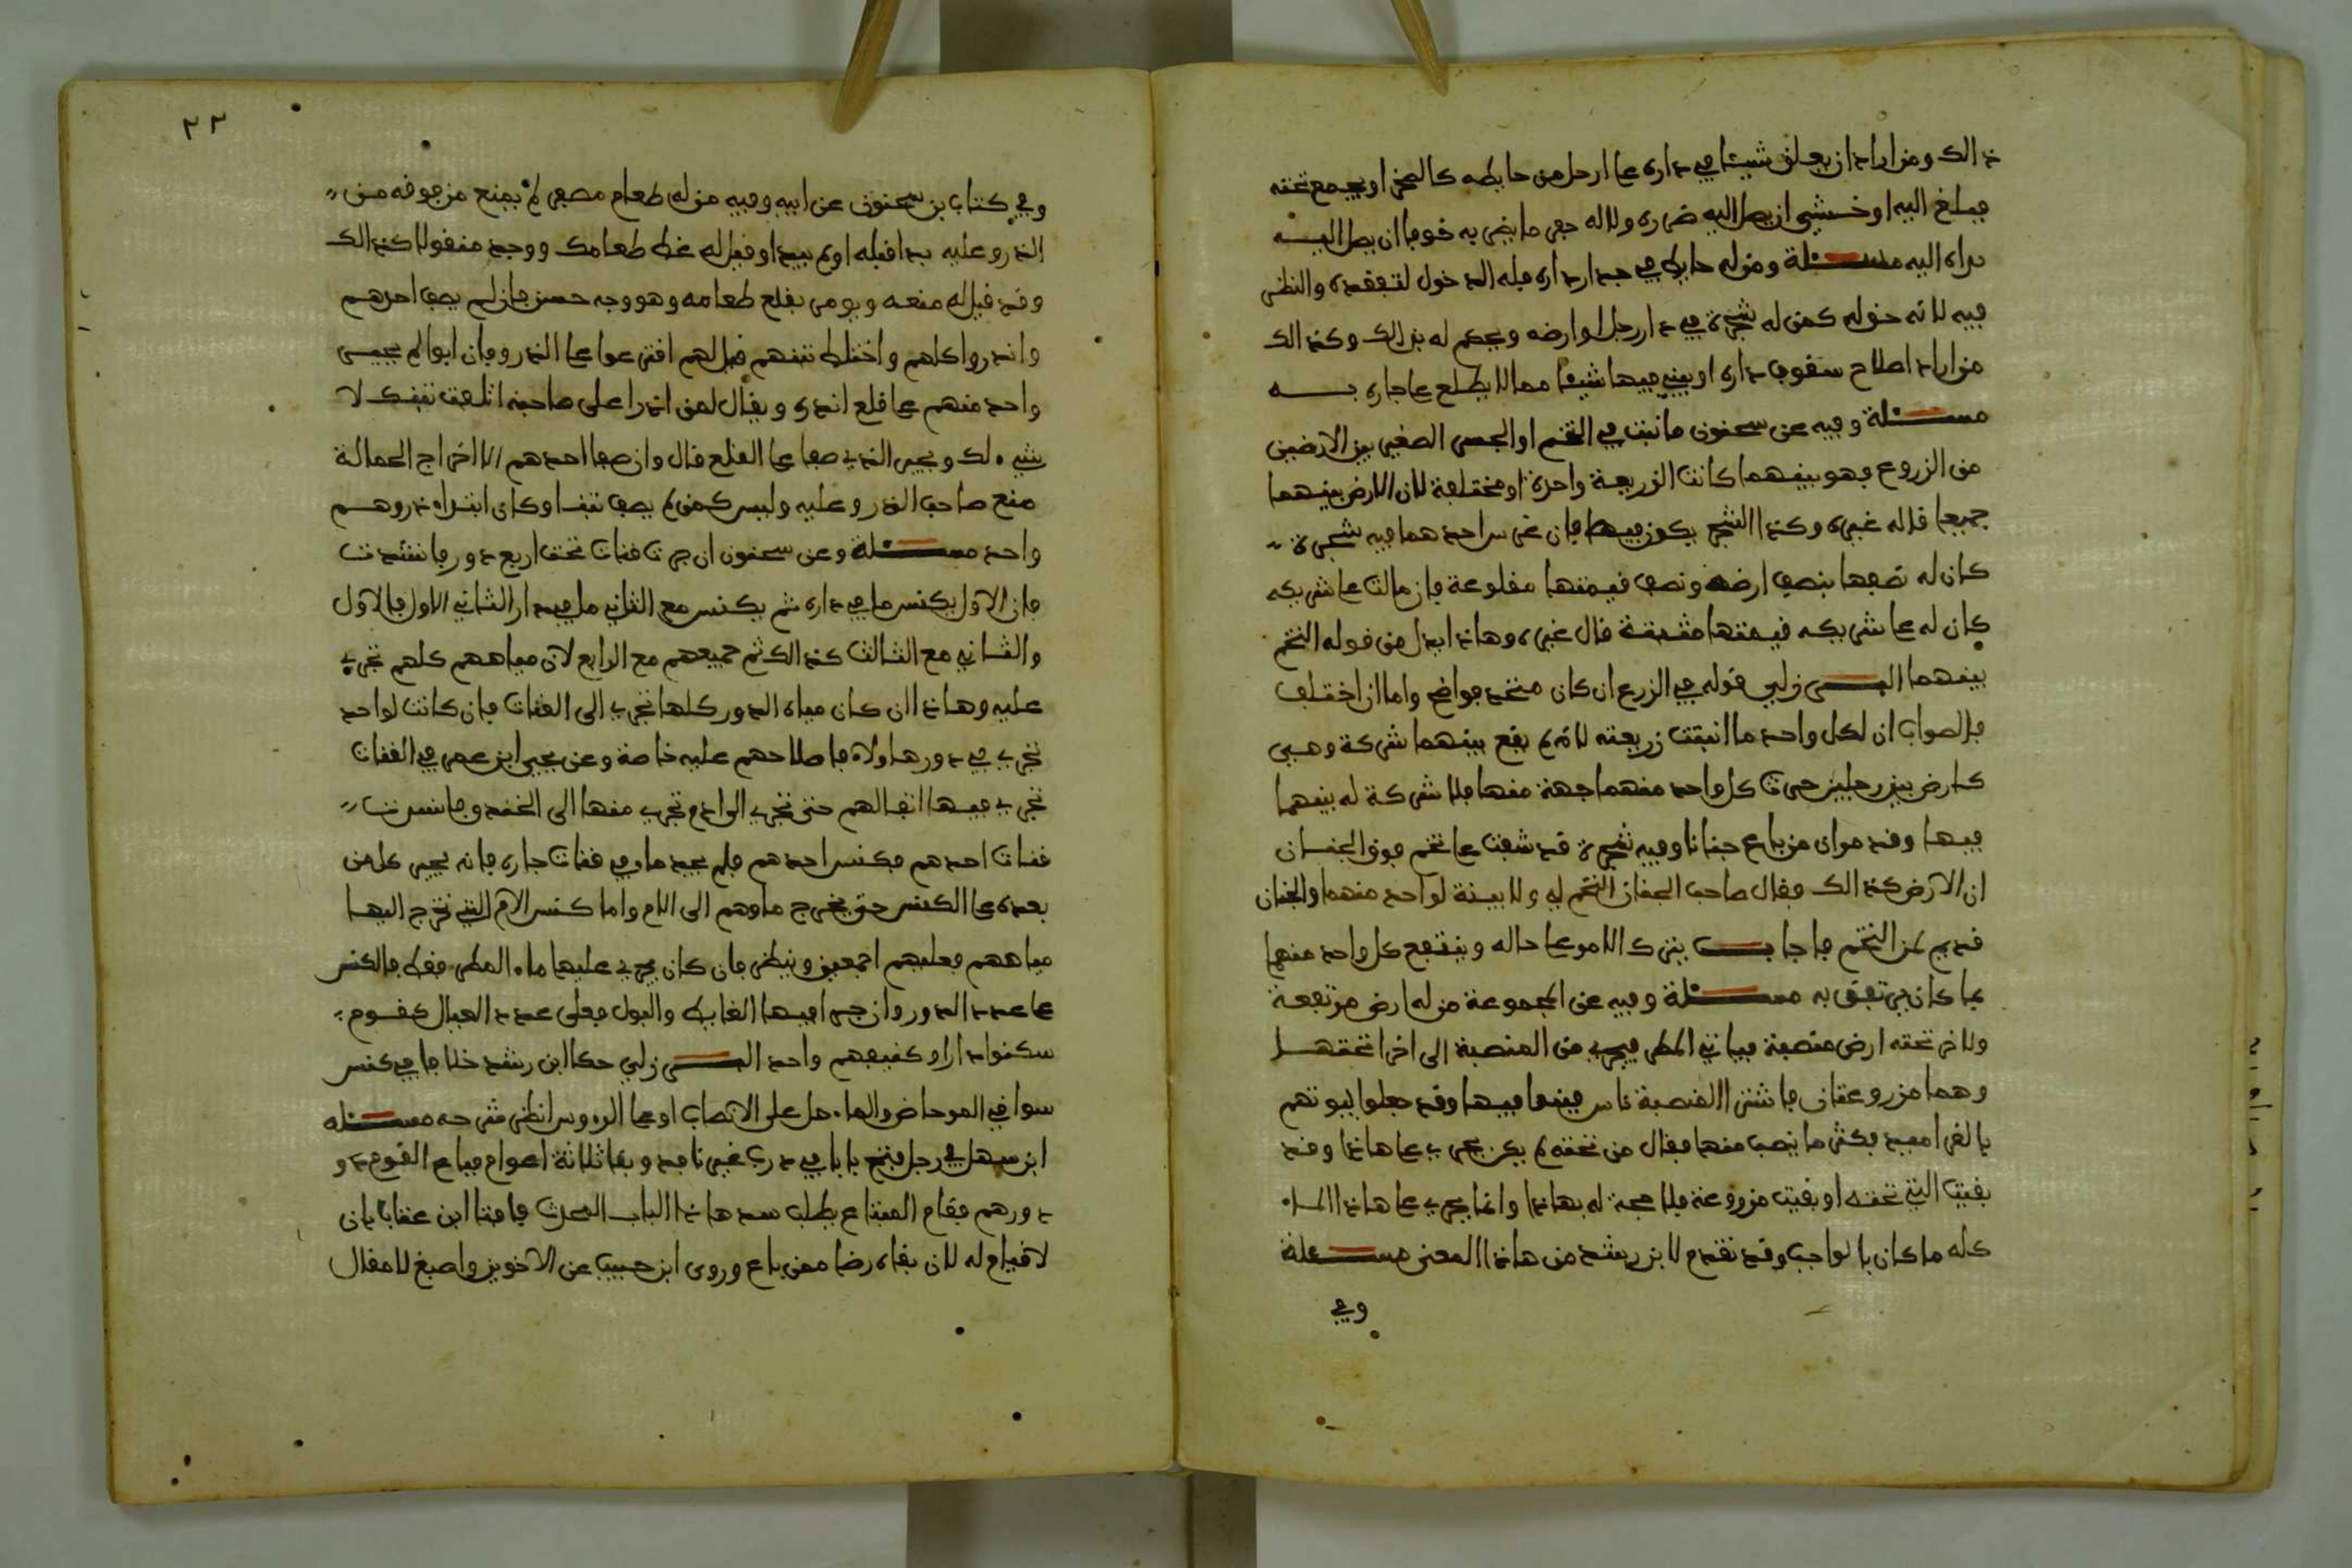 ذالك ومن اراد ان يعلق شيئا في داره على ارجل من حايطه كالصخر او يجمع تحته
فبلغ اليه او خشي ان يصل اليه ضرره ولاله حفر ما يضر به خوفا ان يصل اليه
نداه اليه مسئلة ومن له حايط في جدار داره فله الدخول لتفقده والنظر
فيه لانه خوله كمن له شجرة في دار رجل او ارضه ويحكم له بذالك وكذالك
من اراد اصلاح سقوف داره او يبني فيها شيئا مما لا يطلع على جاره به
مسئلة وفيه عن سحنون ما نبت في التخم او الجسر الصغير بين الارضين
من الزروع فهو بينهما كانت الزريعة واحدة او مختلفة لان الارض بينهما
جميعا قاله غيره وكذا الشجر يكون فيها فان غرس احدهما فيه شجرة
كان له نصفها بنصف ارضه ونصف قيمتها مقلوعة فان مالت على شريكه
كان له على شريكه قيمتها مثبتة قال غيره وهاذا يدل من قوله التخم
بينهما البرزلي قوله في الزرع ان كان متحد فواضح واما ان اختلف
فالصواب ان لكل واحد ما انبتت زريعته لانه لم يقع بينهما شركة وهي
كارض بين رجلين حرث كل واحد منهما جهة منها فلا شركة له بينهما
فيها وفيه من باع جنانا وفيه شجرة قد شقت على تخم فوق الجنان
ان الارض كذالك فقال صاحب الجنان التخم لي ولا بينة لواحد منهما والجنان
قديم لمن التخم فاجاب يترك الامر على حاله وينتفع كل واحد منهما
بما كان يرتفق به مسئلة وفيه عن المجموعة من له ارض مرتفعة
ولاخر تحته ارض منصبة فياتي المطر فيجري من المنصبة الى اخرا تحتها
وهما مزروعتان فاشترا المنصبة ناس فبنوا فيها وقد جعلوا لبيوتهم
بالقرامد فكثر ما ينصب منها فقال من تحته لم يكن يجري على هاذا وقد
بقيت التي تحته او بقيت مزروعة فلا حجة له بهاذا وانما يجري على هاذا الماء
كله ما كان بالواجب وقد تقدم لابن رشد من هاذا المعنى مسئلة
وفي
٢٢
وفي كتاب بن سحنون عن ابيه وفيه من له طعام مصفر لم يمنع من جوفه من
اندر وعليه بدا قبله او لم يبدا وقيل له غط طعامك ووجد منقولا كذالك
وقد قيل له منعه ويومر بقلع طعامه وهو وجه حسن فان لم يصف احدهم
واندروا كلهم واختلط تبنهم قيل لهم اقترعوا على اندر وفان ابوا لم يجبر
واحد منهم على قلع اندره ويقال لمن اندرا على صاحبه اتلفت تبنك لا
شيء لك ويجبر الذي صفا على القلع قال وان صفا احدهم الا اخراج الحمالة
منع صاحب اندر وعليه وليس كمن لم يصف تبنا وكان ابتداء ندروهم
واحد مسئلة وعن سحنون ان جرت قنات تحت اربع دور فانسدت
فان الاول يكنس ما في داره ثم يكنس مع الثاني ما في دار الثاني الاول فالاول
والثاني مع الثالث كذالك ثم جميعهم مع الرابع لان مياههم كلهم تجري
عليه وهاذا ان كان مياه الدور كلها تجري الى القنات فان كانت لواحد
تجري في دورها ولاء فاصلاحهم عليه خاصة وعن يحيى ابن عمر في القنات
تجري فيها اثقالهم حتى تجري الوادم تجري منها الى الخندق فانسدت
قنات احدهم فكنس احدهم فلم يجد ماوه قنات جاره فانه يجبر كل من
بعده على الكنس حتى يخرج ماوهم الى الام واما كنس الام التي تخرج اليها
مياههم فعليهم اجمعين وينظر فان كان يجري عليها ماء المطر فقط فالكنس
على عدد الدور وان جرا فيها الغايط والبول فعلى عدد العيال كقوم
سكنوا دارا وكنيفهم واحد البرزلي حكا ابن رشد خلافا في كنس
سواقي المرحاض والماء هل على الانصاب او على الروس انظر شرحه مسئله
ابن سهل في رجل فتح بابا في درب غير نافذ وبقا ثلاثة اعوام فباع القوم دو
دورهم فقام المبتاع يطلب سد هاذا الباب المحدث فافتا ابن عتاب بان
لا قيام له لان بقاءه رضا ممن باع وروى ابن حبيب عن الاخوين واصبغ لا مقال